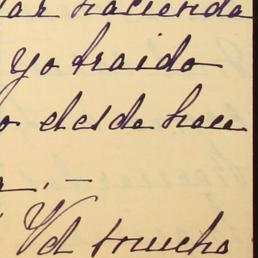 haciendo
yo traido
o desde hace
Vd mucho